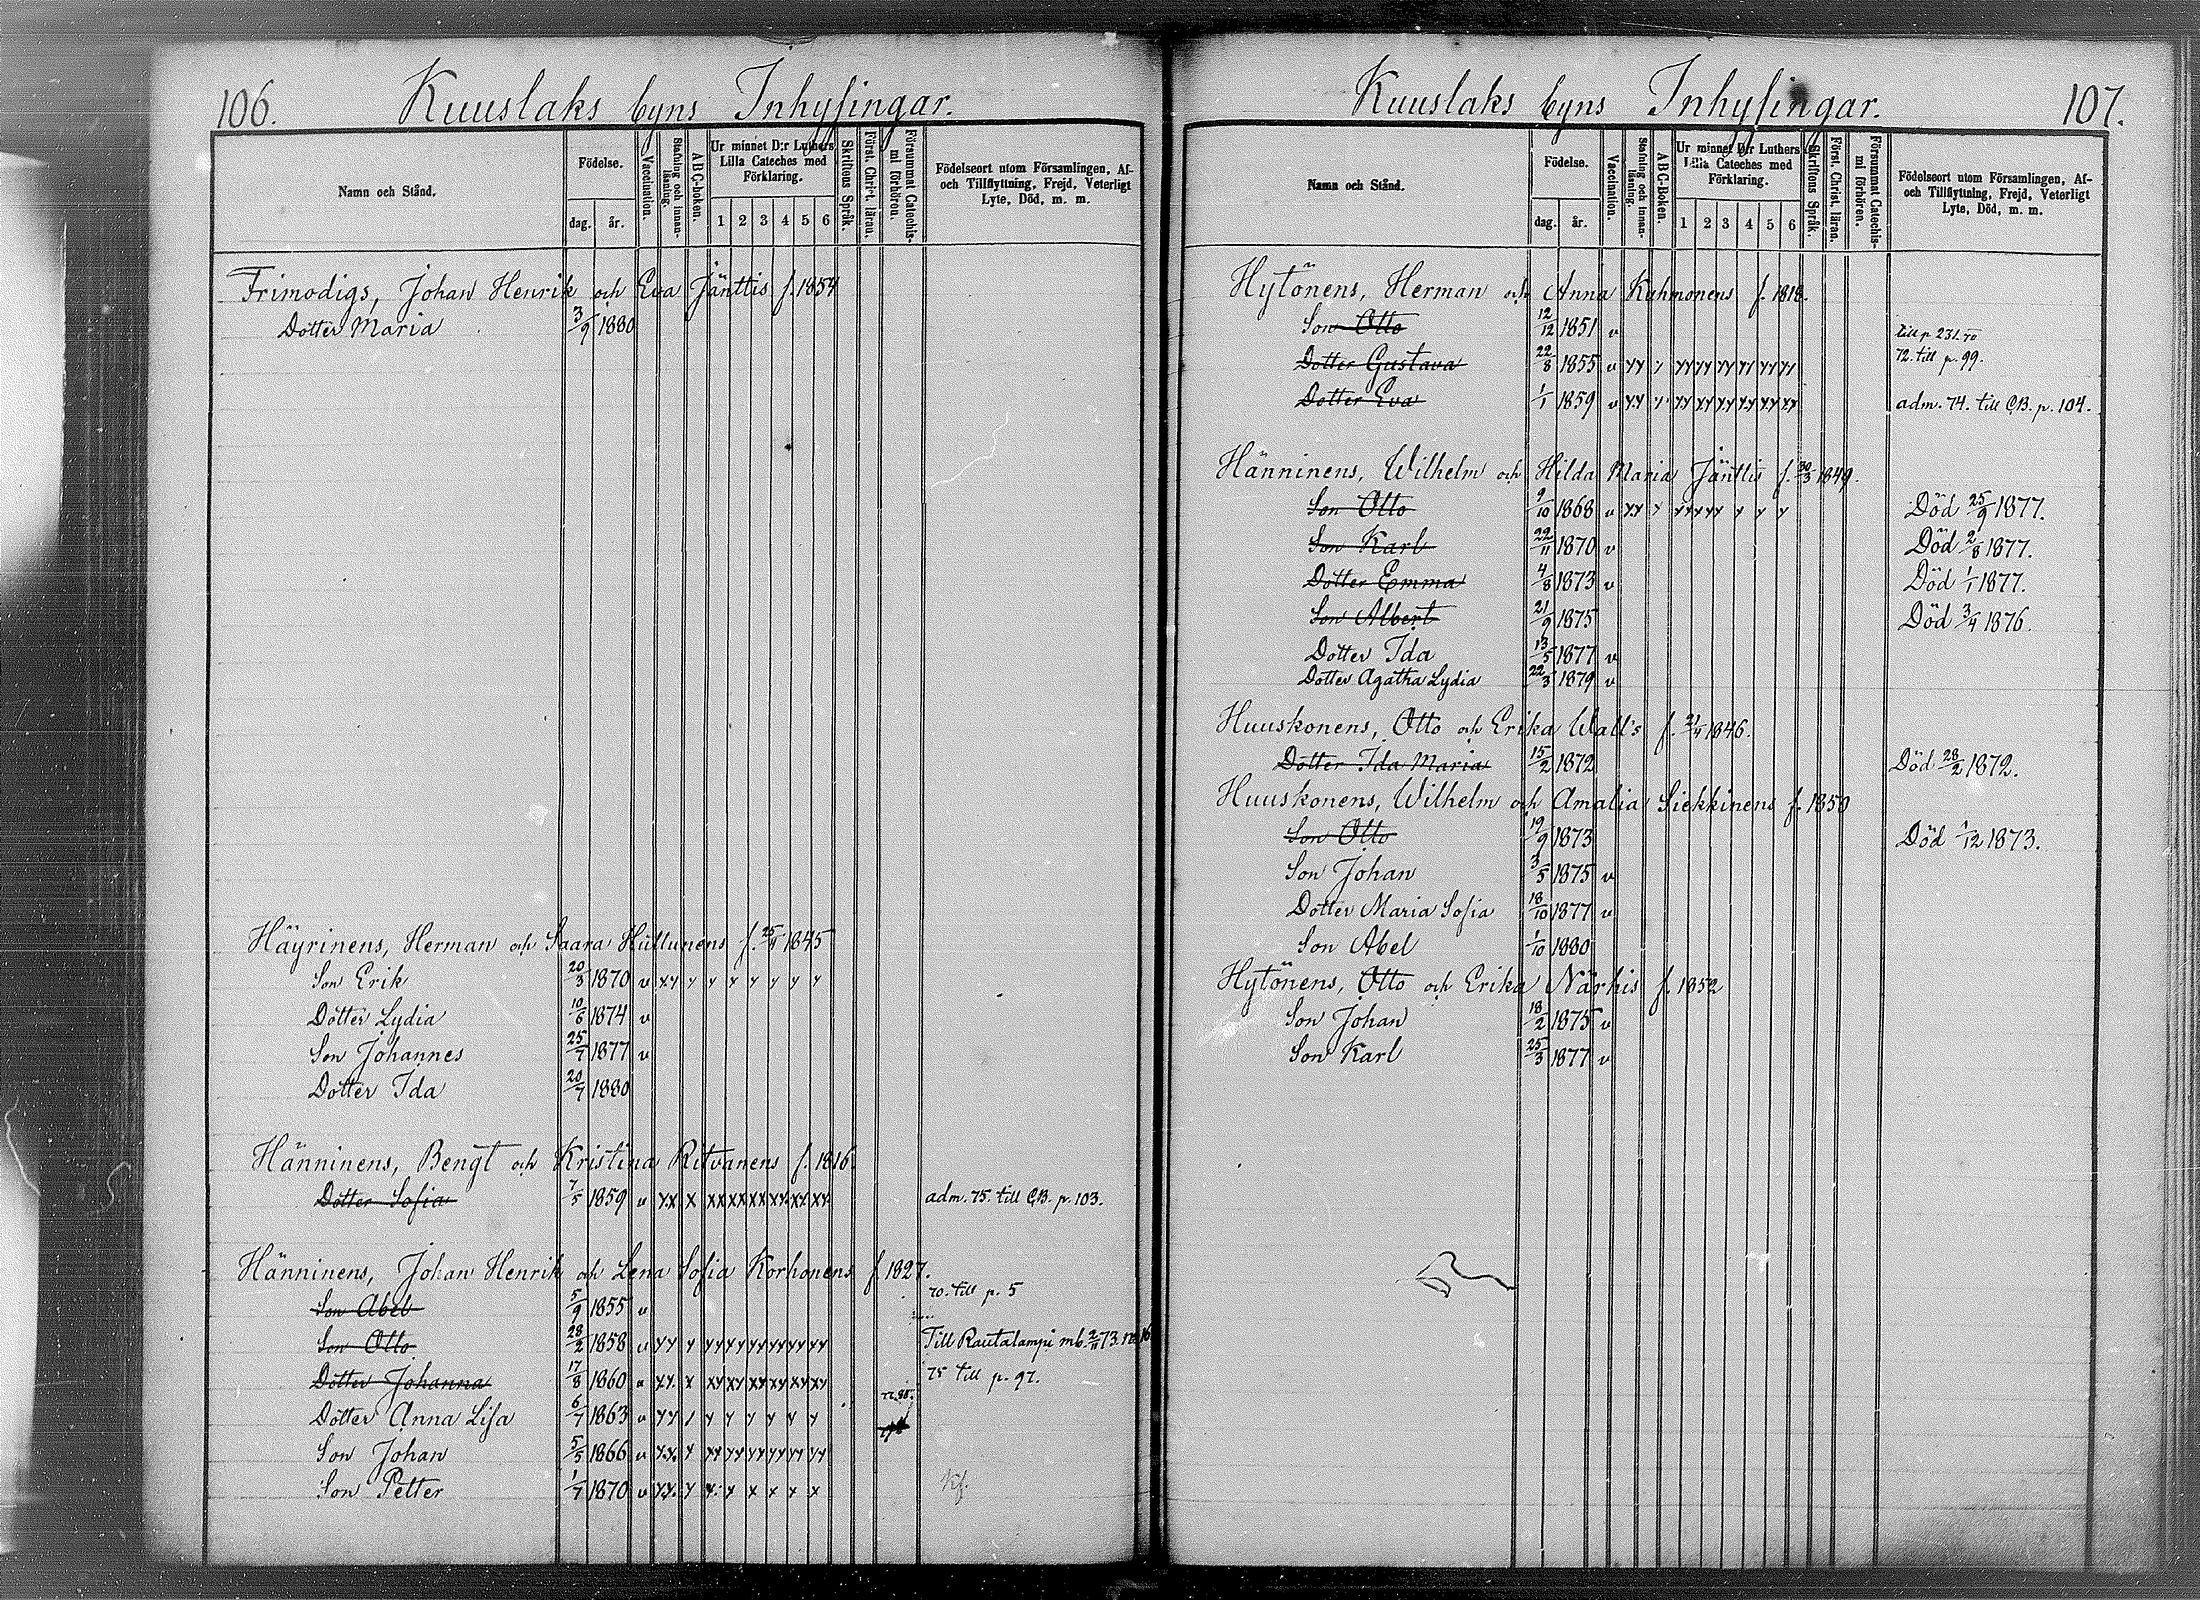 106. Kuuslaks byns Inhysingar.
Namn och Stånd.
Födelse.
dag. år.
Vaccination.
Stafning och innan-läsning.
ABC-boken.
Ur minnet D:r Luthers Lilla Cateches med Förklaring.
1 2 3 4 5 6
Skriftens Språk.
Först. Christ. läran.
Försummat Catechis-mi förhören.
Födelseort utom Församlingen, Af-
och Tillflyttning, Frejd, Veterligt
Lyte, Död, m. m.
Frimodigs, Johan Henrik och Eva Jänttis f. 1854
Dotter Maria 3/9 1880
Häyrinens, Herman och Saara Huttunens f. 25/11 1845
Son Erik 20/3 1870 v xx x x x x x x x
Dotter Lydia 10/6 1874 v
Son Johannes 25/7 1877 v
Dotter Ida 20/7 1880
Hänninens, Bengt och Kristina Ritvanens f. 1816.
Dotter Sofia 7/5 1859 v xx x xx xx xx xx xx xx adm. 75. till CB. p. 103.
Hänninens, Johan Henrik och Lena Sofia Korhonens f. 1827.
Son Abel 5/9 1855 v 70. till p. 5
Son Otto 28/2 1858 v xx x xx xx xx xx xx xx Till Rautalampi mb. 2/11 73. no 16
Dotter Johanna 17/8 1860 v xx. x xx xx xx xx xx xx 75 till p. 97.
Dotter Anna Lisa 6/7 1863 v xx / x x x x x x 77. 80.
Son Johan 5/5 1866 v xx. x xx xx xx xx xx xx
Son Petter 1/7 1870 v xx. x x. x x x x x
Kuuslaks byns Inhysingar. 107.
Namn och Stånd.
Födelse.
dag. år.
Vaccination.
Stafning och innan-läsning.
ABC-Boken.
Ur minnet D:r Luthers Lilla Cateches med Förklaring.
1 2 3 4 5 6
Skriftens Språk.
Först. Christ. läran.
Försummat Catechis-mi förhören.
Födelseort utom Församlingen, Af-
och Tillflyttning, Frejd, Veterligt
Lyte, Död, m. m.
Hytönens, Herman och Anna Kuhmonens f. 1818.
Son Otto 12/12 1851 v till p 231. 70
Dotter Gustava 22/8 1855 v xx / xx xx xx xx xx xx 72. till p. 99.
Dotter Eva 1/1 1859 v xx x xx xx xx xx xx xx adm. 74. till CB. p. 104.
Hänninens, Wilhelm och Hilda Maria Jänttis f. 30/3 1849.
Son Otto 9/10 1868 v xx x xx xx x x x x Död 25/9 1877.
Son Karl 22/11 1870 v Död 2/8 1877.
Dotter Emma 4/8 1873 v Död 1/1 1877.
Son Albert 21/9 1875 Död 3/4 1876.
Dotter Ida 13/5 1877 v
Dotter Agatha Lydia 22/3 1879 v
Huuskonens, Otto och Erika Wall's f. 21/4 1846.
Dotter Ida Maria 15/2 1872 Död 28/2 1872.
Huuskonens, Wilhelm och Amalia Siekkinens f. 1850
Son Otto 19/9 1873 Död 1/12 1873.
Son Johan 3/5 1875 v
Dotter Maria Sofia 18/10 1877 v
Son Abel 1/10 1880
Hytönens, Otto och Erika Närhis f. 1852
Son Johan 18/2 1875 v
Son Karl 25/3 1877 v